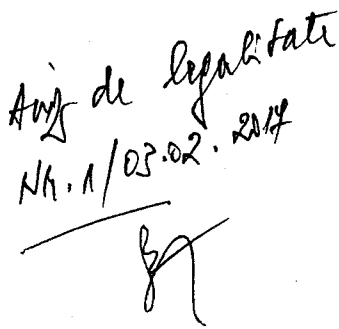 Aviz de legalitate
Nr. 1/03.02.2017